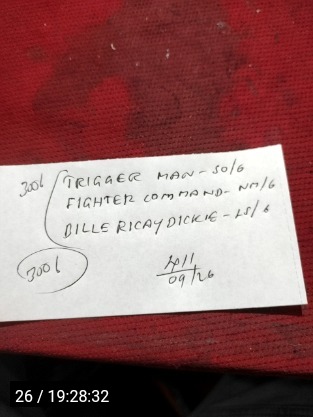 300/ TRIGGER MAN - SO/6
FIGHTER COMMAND - NM/6
BILLERICAY DICKIE - LS/6
300/
09/26
26 / 19:28:32